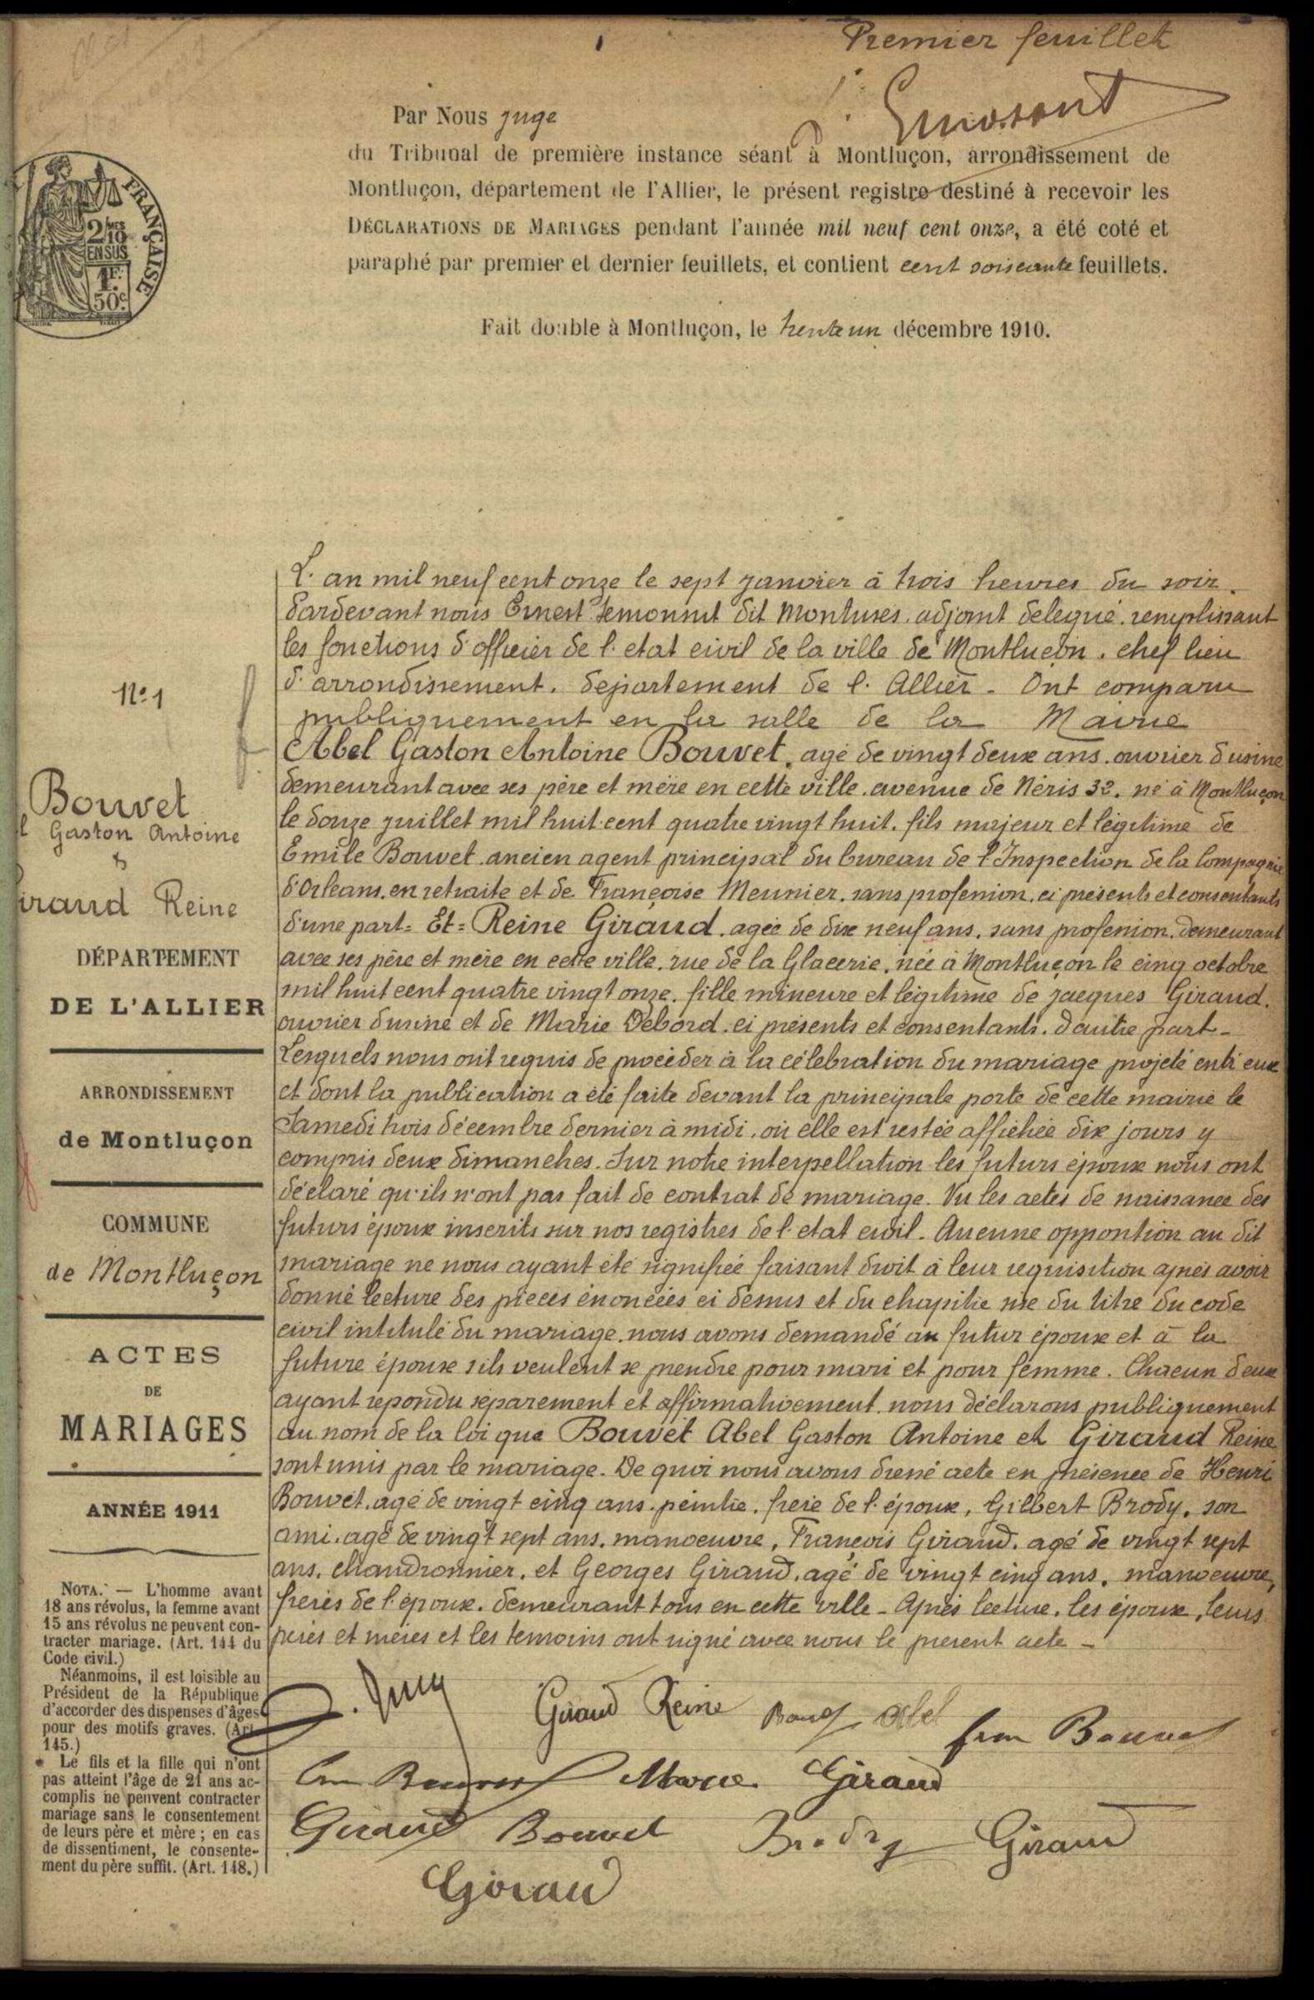 Premier feuillet
Par Nous juge
du Tribunal de première instance séant à Montluçon, arrondissement de
Montluçon, département de l'Allier, le présent registre destiné à recevoir les
DÉCLARATIONS DE MARIAGES pendant l'année mil neuf cent onze, a été coté et
paraphé par premier et dernier feuillets, et contient cent soixante feuillets.
Fait double à Montluçon, le trente un décembre 1910.
FRANÇAISE
2/10 EN SUS
1F. 50c
N° 1
Bouvet
Gaston Antoine
&
Giraud Reine
DÉPARTEMENT
DE L'ALLIER
ARRONDISSEMENT
de Montluçon
COMMUNE
de Montluçon
ACTES
DE
MARIAGES
ANNÉE 1911
NOTA. — L'homme avant
18 ans révolus, la femme avant
15 ans révolus ne peuvent con-
tracter mariage. (Art. 144 du
Code civil.)
Néanmoins, il est loisible au
Président de la République
d'accorder des dispenses d'âges
pour des motifs graves. (Art.
145.)
Le fils et la fille qui n'ont
pas atteint l'âge de 21 ans ac-
complis ne peuvent contracter
mariage sans le consentement
de leurs père et mère ; en cas
de dissentiment, le consente-
ment du père suffit. (Art. 148.)
L'an mil neuf cent onze le sept janvier à trois heures du soir.
Pardevant nous Ernest dit adjoint délégué, remplissant
les fonctions d'officier de l'etat civil de la ville de Montluçon, chef lieu
d'arrondissement, departement de l'Allier - Ont comparu
publiquement en la salle de la Mairie
Abel Gaston Antoine Bouvet, agé de vingt deux ans, ouvrier d'usine
demeurant avec ses père et mère en cette ville, avenue de Néris 32, né à Montluçon
le douze juillet mil huit cent quatre vingt huit, fils majeur et légitime de
Emile Bouvet ancien agent principal du bureau de l'Inspection de la Compagnie
d'Orleans, en retraite et de Françoise Meunier, sans profession, ci présents et consentants
d'une part = Et = Reine Giraud, agée de dix neuf ans, sans profession, demeurant
avec ses père et mère en cette ville, rue de la Glacerie, née à Montluçon le cinq octobre
mil huit cent quatre vingt onze, fille mineure et légitime de Jacques Giraud,
ouvrier d'usine et de Marie Debord, ci présents et consentants, d'autre part -
Lesquels nous ont requis de procéder à la célebration du mariage projeté entr'eux
et dont la publication a été faite devant la principale porte de cette mairie le
Samedi trois décembre dernier à midi, où elle est restée affichée dix jours y
compris deux dimanches. Sur notre interpellation les futurs époux nous ont
déclaré qu'ils n'ont pas fait de contrat de mariage. Vu les actes de naissance des
futurs époux inscrits sur nos registres de l'etat civil. Aucune opposition au dit
mariage ne nous ayant été signifiée faisant droit à leur requisition après avoir
donné lecture des pièces énoncées ci dessus et du chapitre six du titre du code
civil intitulé du mariage, nous avons demandé au futur époux et à la
future épouse s'ils veulent se prendre pour mari et pour femme. Chacun d'eux
ayant répondu séparement et affirmativement, nous déclarons publiquement
au nom de la loi que Bouvet Abel Gaston Antoine et Giraud Reine
sont unis par le mariage. De quoi nous avons dressé acte en présence de Henri
Bouvet, agé de vingt cinq ans, peintre, frère de l'époux, Gilbert Brody, son
ami, agé de vingt sept ans, manoeuvre, François Giraud, agé de vingt sept
ans, chaudronnier, et Georges Giraud, agé de vingt cinq ans, manoeuvre,
freres de l'épouse, demeurant tous en cette ville - Après lecture, les époux, leurs
pères et mères et les temoins ont signé avec nous le present acte -
Giraud Reine Bouvet Abel Bouvet
Bouvet Marie Giraud
Giraud Bouvet Brody Giraud
Giraud